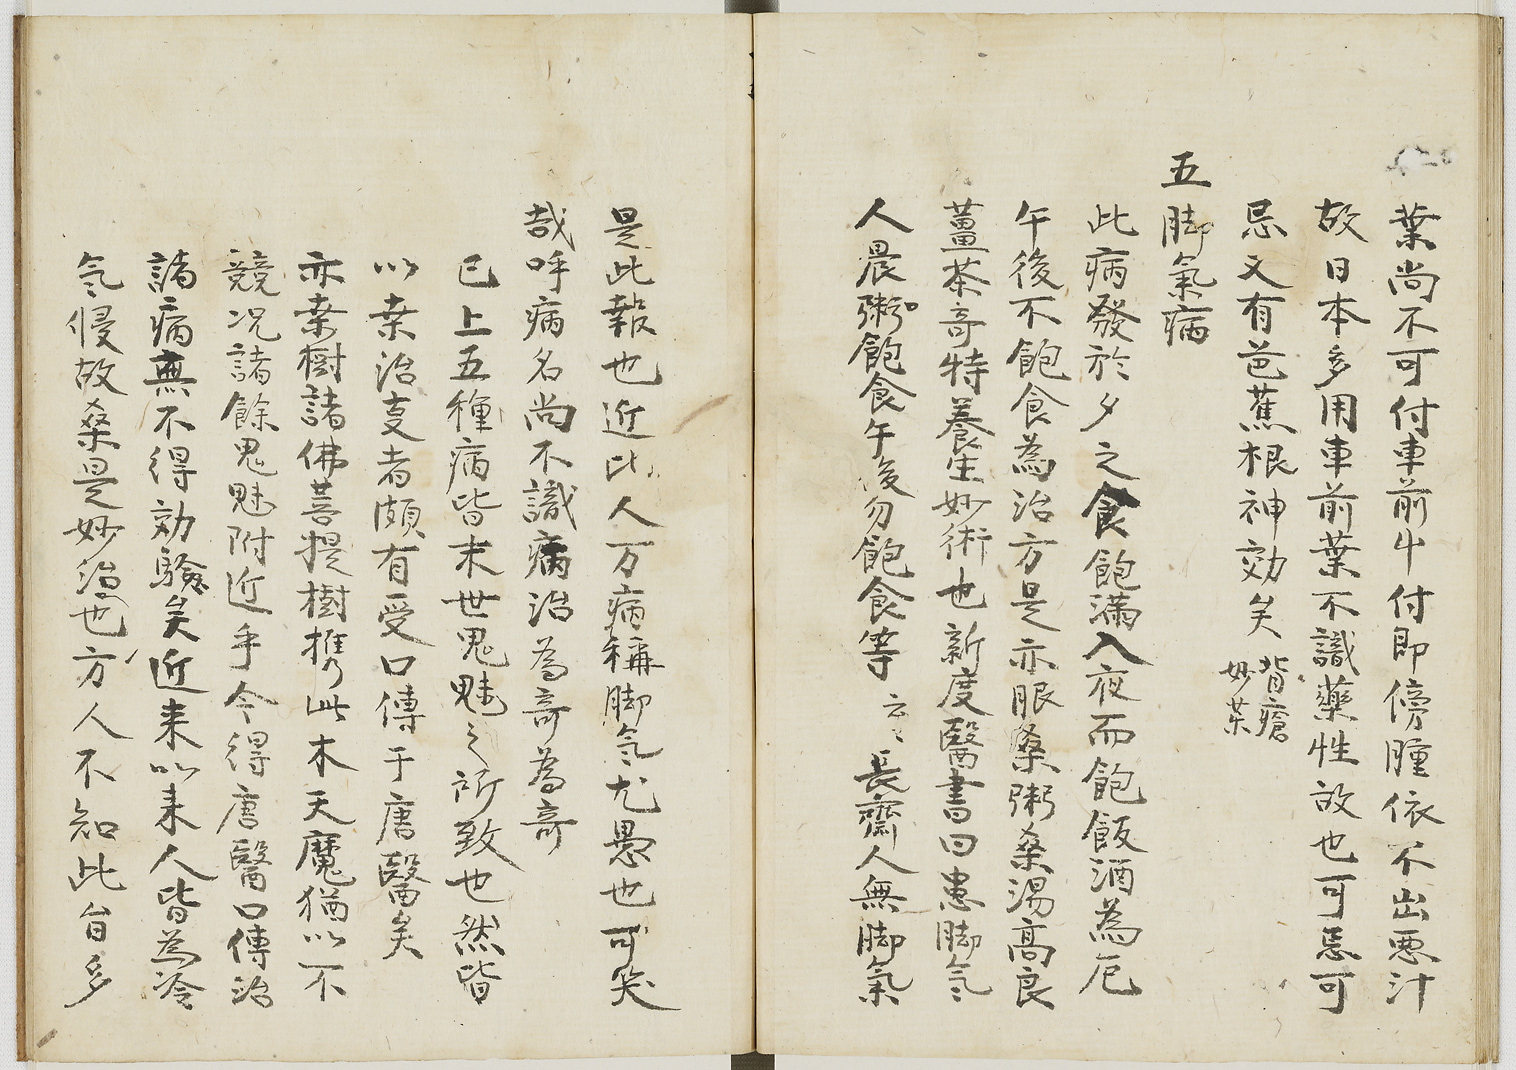 葉尚不可付車前牛付即傍腫依不出悪汁
故日本多用車前葉不識藥性故也可忌可
忌又有芭蕉根神効矣
背瘡
妙薬
五脚氣病
此病發於夕之食飽満入夜而飽飯酒為厄
午後不飽食為治方是亦服桑粥桑湯高良
薑茶奇特養生妙術也新度醫書曰患脚氣
人晨粥飽食午後勿飽食等云々長齋人無脚氣
是此報也近比人万病稱脚氣尤愚也可笑
哉呼病名尚不識病治為奇為奇
已上五種病皆末世鬼魅之所致也然皆
以桒治支者頗有受口傳于唐醫矣
亦桒樹諸佛菩提樹携此木天魔猶以不
競况諸餘鬼魅附近乎今得唐醫口傳治
諸病無不得効驗矣近来以来人皆為冷
氣侵故桑是妙治也方人不知此旨多